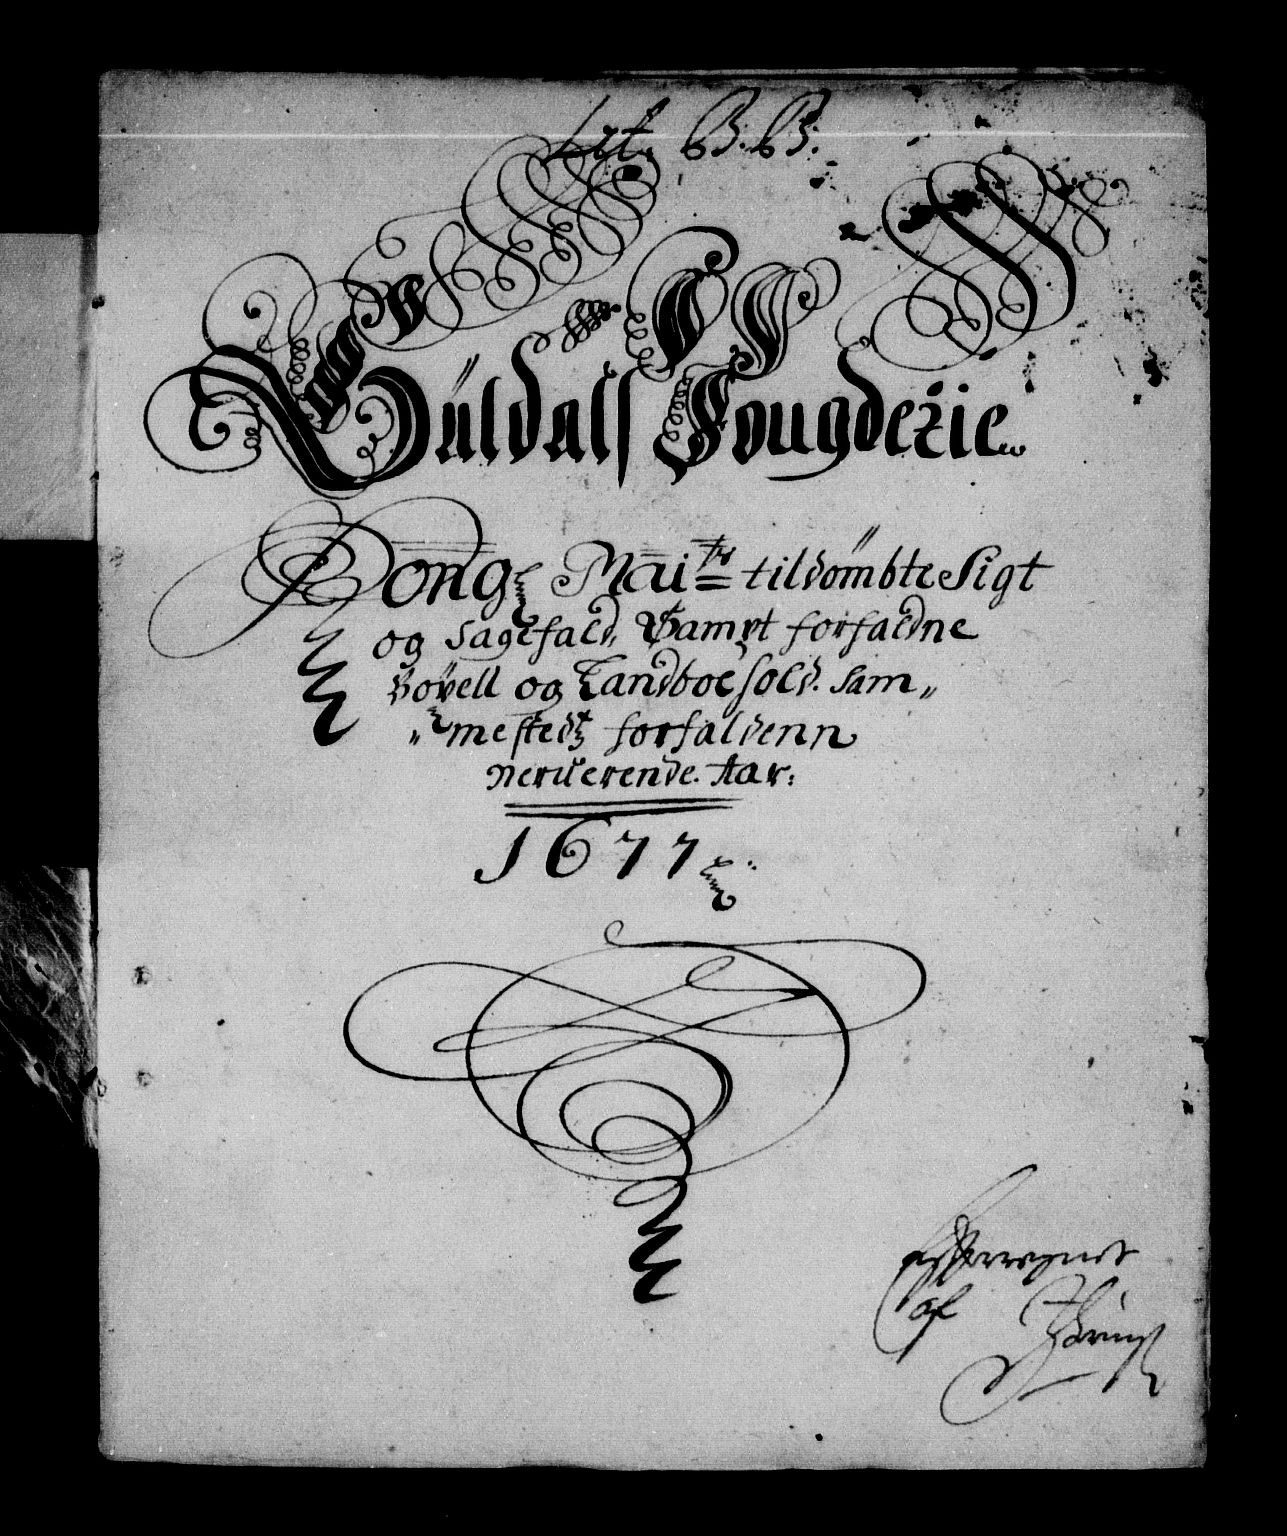 Lit. B.B:
Büdals Fougderie
Kong Maits tildömbte Sigt
og Sagefald, Sampt forfaldne
Bövell og Landboesold. sam„
„mestedz forfaldenn
neruerende. Aar:
1677
af